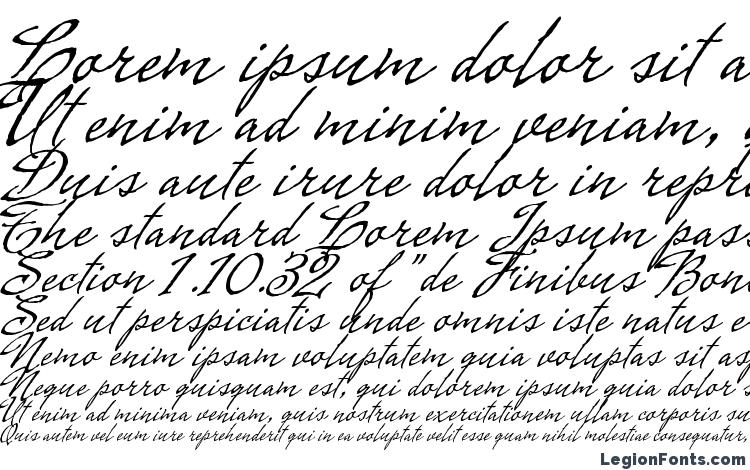 Lorem ipsum dolor sit a
Ut enim ad minim veniam,
Duis aute irure dolor in repr
The standard Lorem Ipsum pass
Section 1.10.32 of "de Finibus Bon
Sed ut perspiciatis unde omnis iste natus e
Nemo enim ipsam voluptatem quia voluptas sit as
Neque porro quisquam est, qui dolorem ipsum quia dolor s
Ut enim ad minima veniam, quis nostrum exercitationem ullam corporis su
Quis autem vel eum iure reprehenderit qui in ea voluptate velit esse quam nihil molestiae consequatur,
LegionFonts.com